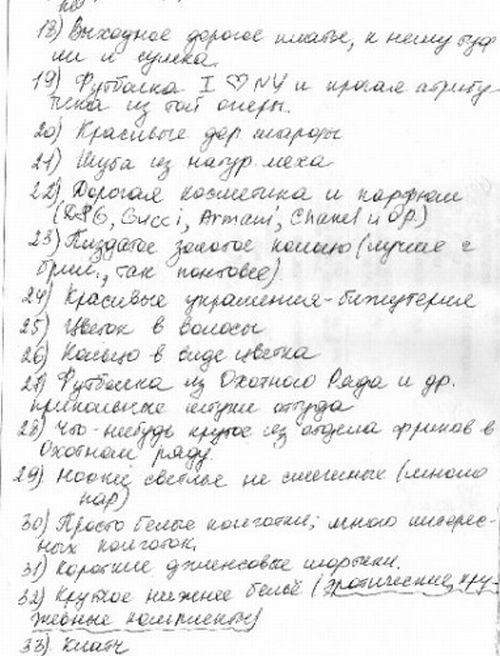 18) Выходное дорогое платье, к нему туф
ли и сумка.
19) Футболка I ♡ NY и прочая атрибу-
тика из той оперы.
20) Красивые дор шарфы
21) Шуба из натур. меха
22) Дорогая косметика и парфюм
(D&G, Gucci, Armani, Chanel и др.)
23) Пиздатое золотое кольцо (лучше с
брил., так понтовее)
24) Красивые украшения-бижутерия
25) Цветок в волосы
26) Кольцо в виде цветка
27) Футболка из Охотного Ряда и др.
прикольные штуки оттуда
28) Что-нибудь крутое из отдела фриков в
Охотном ряду.
29) Носки светлые не смешных (много
пар)
30) Просто белые колготки; много интерес-
ных колготок.
31) Короткие джинсовые шортики.
32) Крутое нижнее бельё (эротические, кру-
жевные комплекты)
33) Клатч